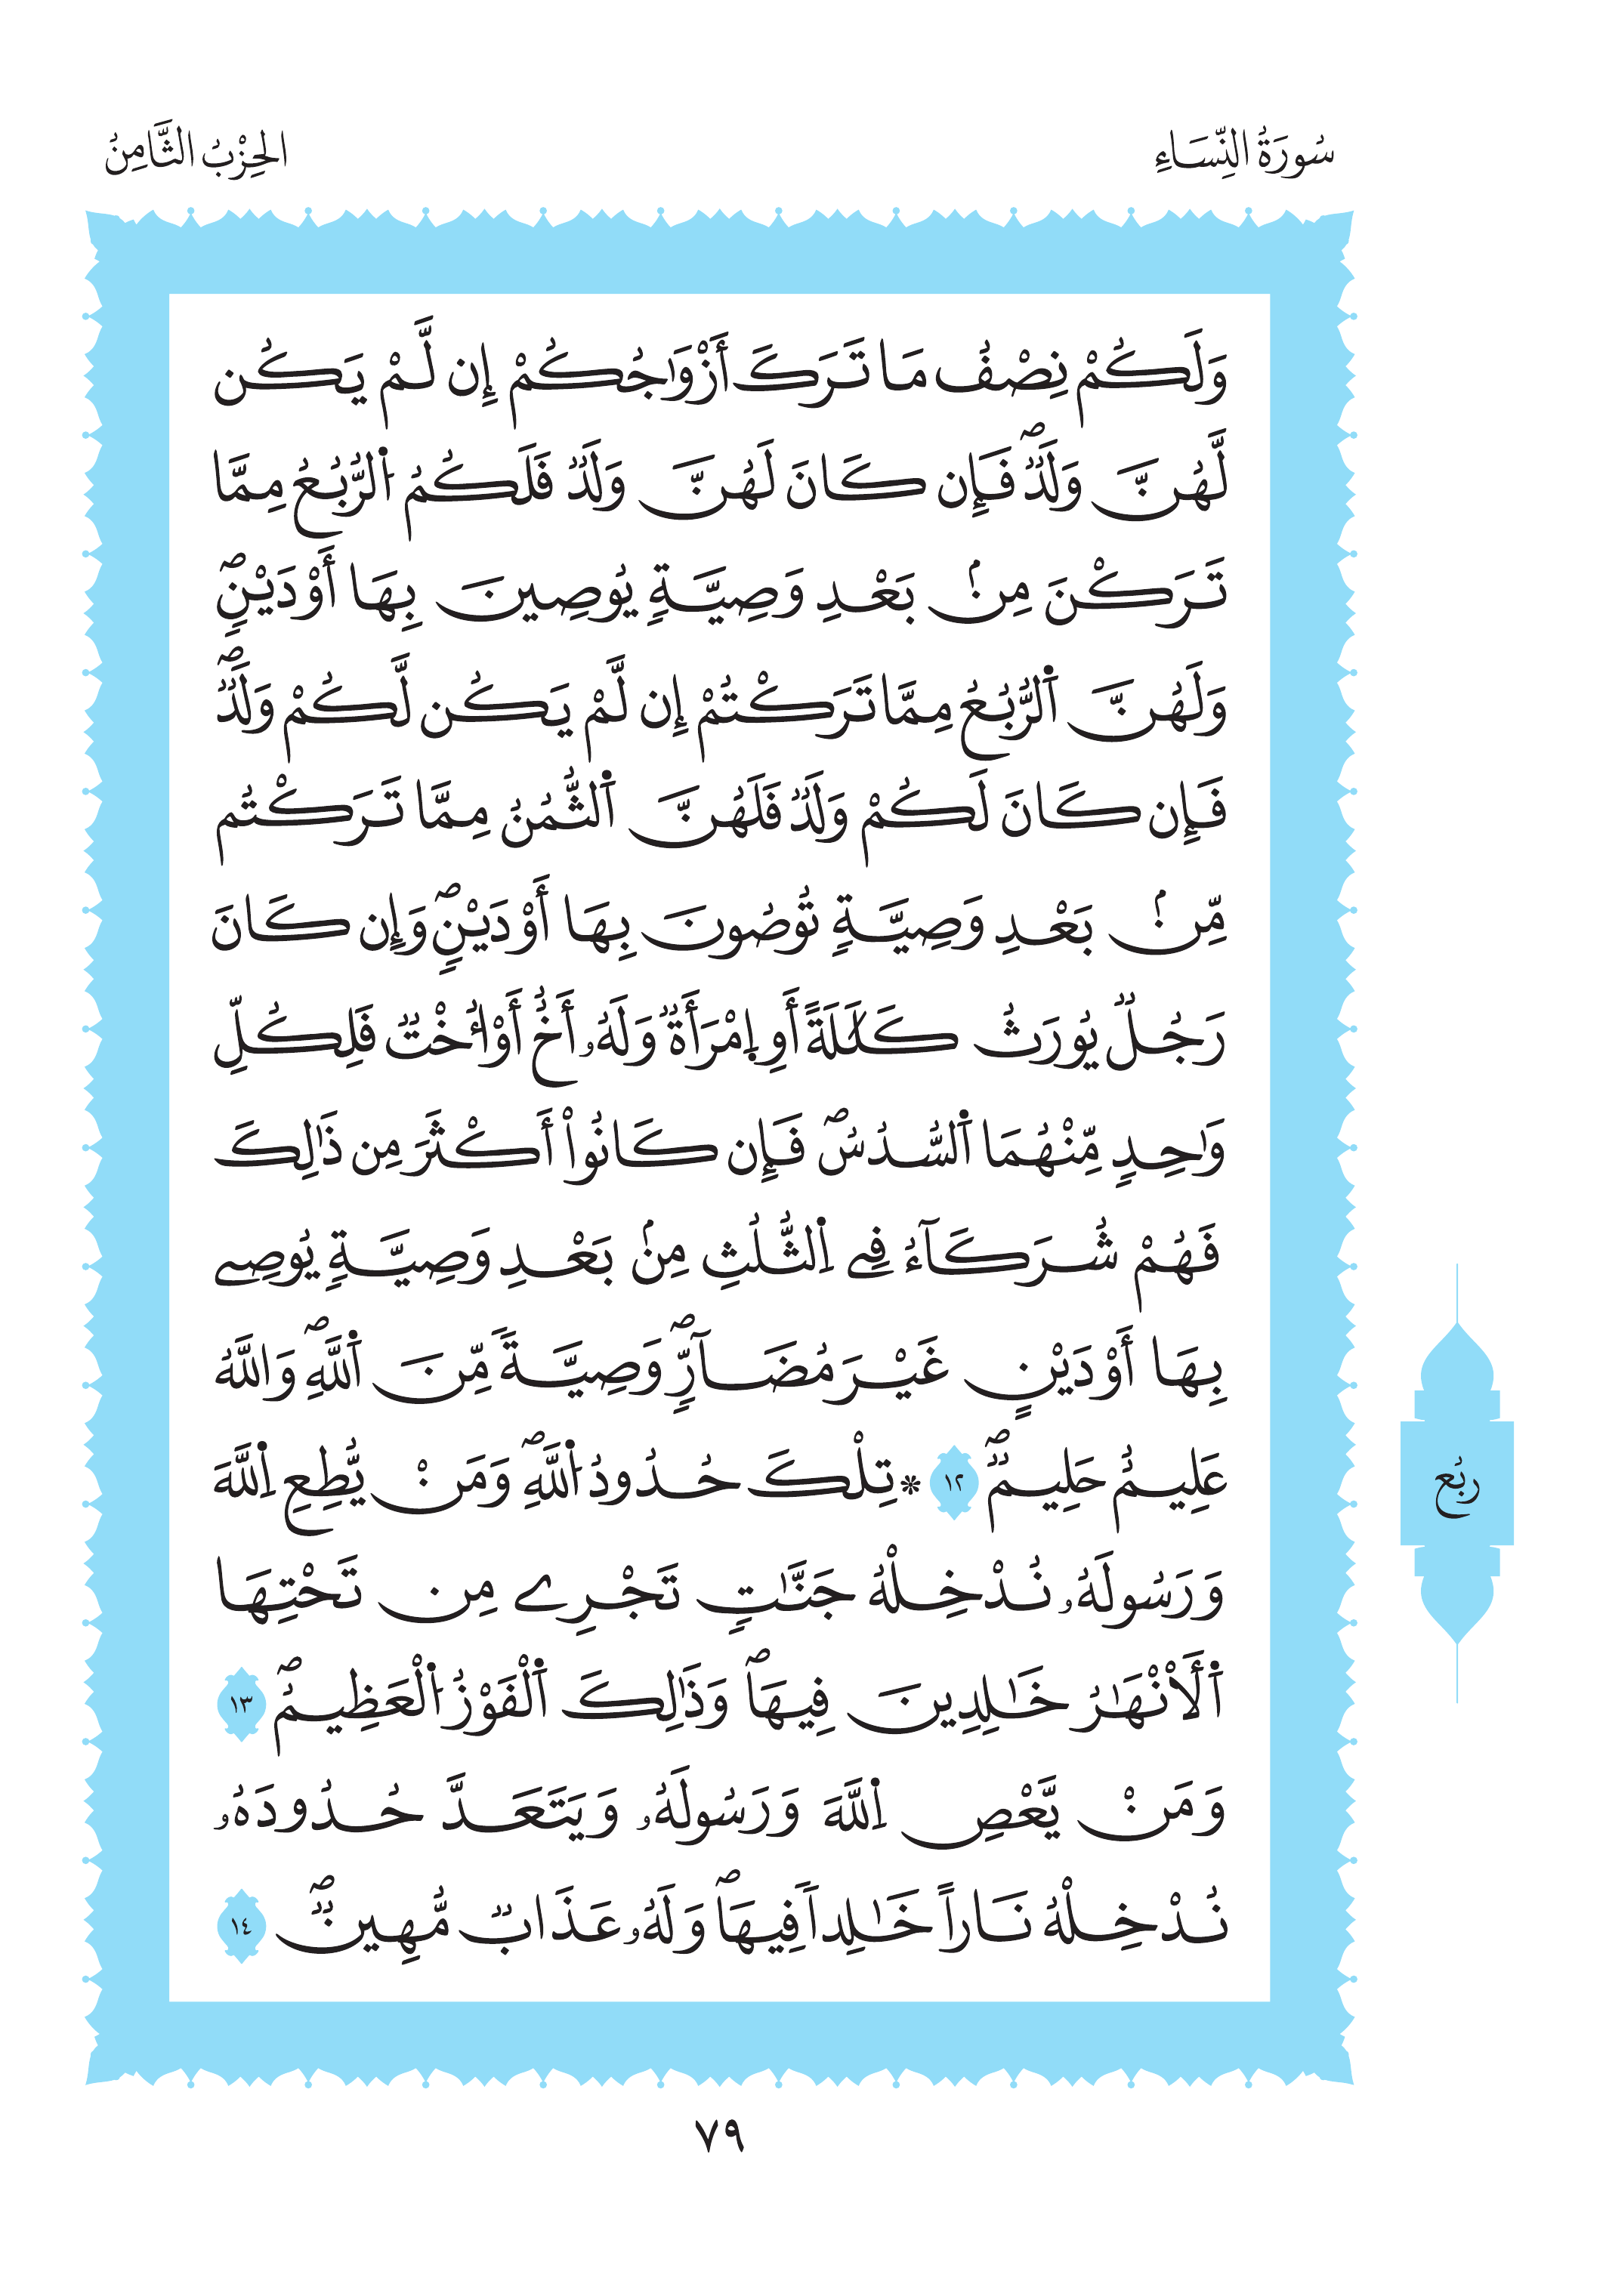 سُورَةُ النِّسَاءِ
الحِزْبُ الثَّامِنُ
وَلَكُمْ نِصْفُ مَا تَرَكَ أَزْوَٰجُكُمْ إِن لَّمْ يَكُن
لَّهُنَّ وَلَدٌۖ فَإِن كَانَ لَهُنَّ وَلَدٌ فَلَكُمُ اُ۬لرُّبُعُ مِمَّا
تَرَكْنَ مِنۢ بَعْدِ وَصِيَّةٍ يُوصِينَ بِهَا أَوْ دَيْنٍۖ
وَلَهُنَّ اَ۬لرُّبُعُ مِمَّا تَرَكْتُمْ إِن لَّمْ يَكُن لَّكُمْ وَلَدٌۖ
فَإِن كَانَ لَكُمْ وَلَدٌ فَلَهُنَّ اَ۬لثُّمُنُ مِمَّا تَرَكْتُم
مِّنۢ بَعْدِ وَصِيَّةٍ تُوصُونَ بِهَا أَوْ دَيْنٍۖ وَإِن كَانَ
رَجُلٌ يُورَثُ كَلَٰلَةً أَوِ اِ۪مْرَأَةٌ وَلَهُۥ أَخٌ أَوُ ا۟خْتٌ فَلِكُلِّ
وَٰحِدٍ مِّنْهُمَا اَ۬لسُّدُسُۖ فَإِن كَانُوا۟ أَكْثَرَ مِن ذَٰلِكَ
فَهُمْ شُرَكَآءُ فِے اِ۬لثُّلُثِ مِنۢ بَعْدِ وَصِيَّةٍ يُوصِے
بِهَا أَوْ دَيْنٍ غَيْرَ مُضَآرٍّۖ وَصِيَّةً مِّنَ اَ۬للَّهِۖ وَاللَّهُ
عَلِيمٌ حَلِيمٌۖ ١٢ * تِلْكَ حُدُودُ اُ۬للَّهِۖ وَمَنْ يُّطِعِ اِ۬للَّهَ
وَرَسُولَهُۥ نُدْخِلْهُ جَنَّٰتٍ تَجْرِے مِن تَحْتِهَا
اَ۬لْأَنْهَٰرُ خَٰلِدِينَ فِيهَاۖ وَذَٰلِكَ اَ۬لْفَوْزُ اُ۬لْعَظِيمُۖ ١٣
وَمَنْ يَّعْصِ اِ۬للَّهَ وَرَسُولَهُۥ وَيَتَعَدَّ حُدُودَهُۥ
نُدْخِلْهُ نَاراً خَٰلِداً فِيهَاۖ وَلَهُۥ عَذَابٌ مُّهِينٌۖ ١٤
ربُع
٧٩